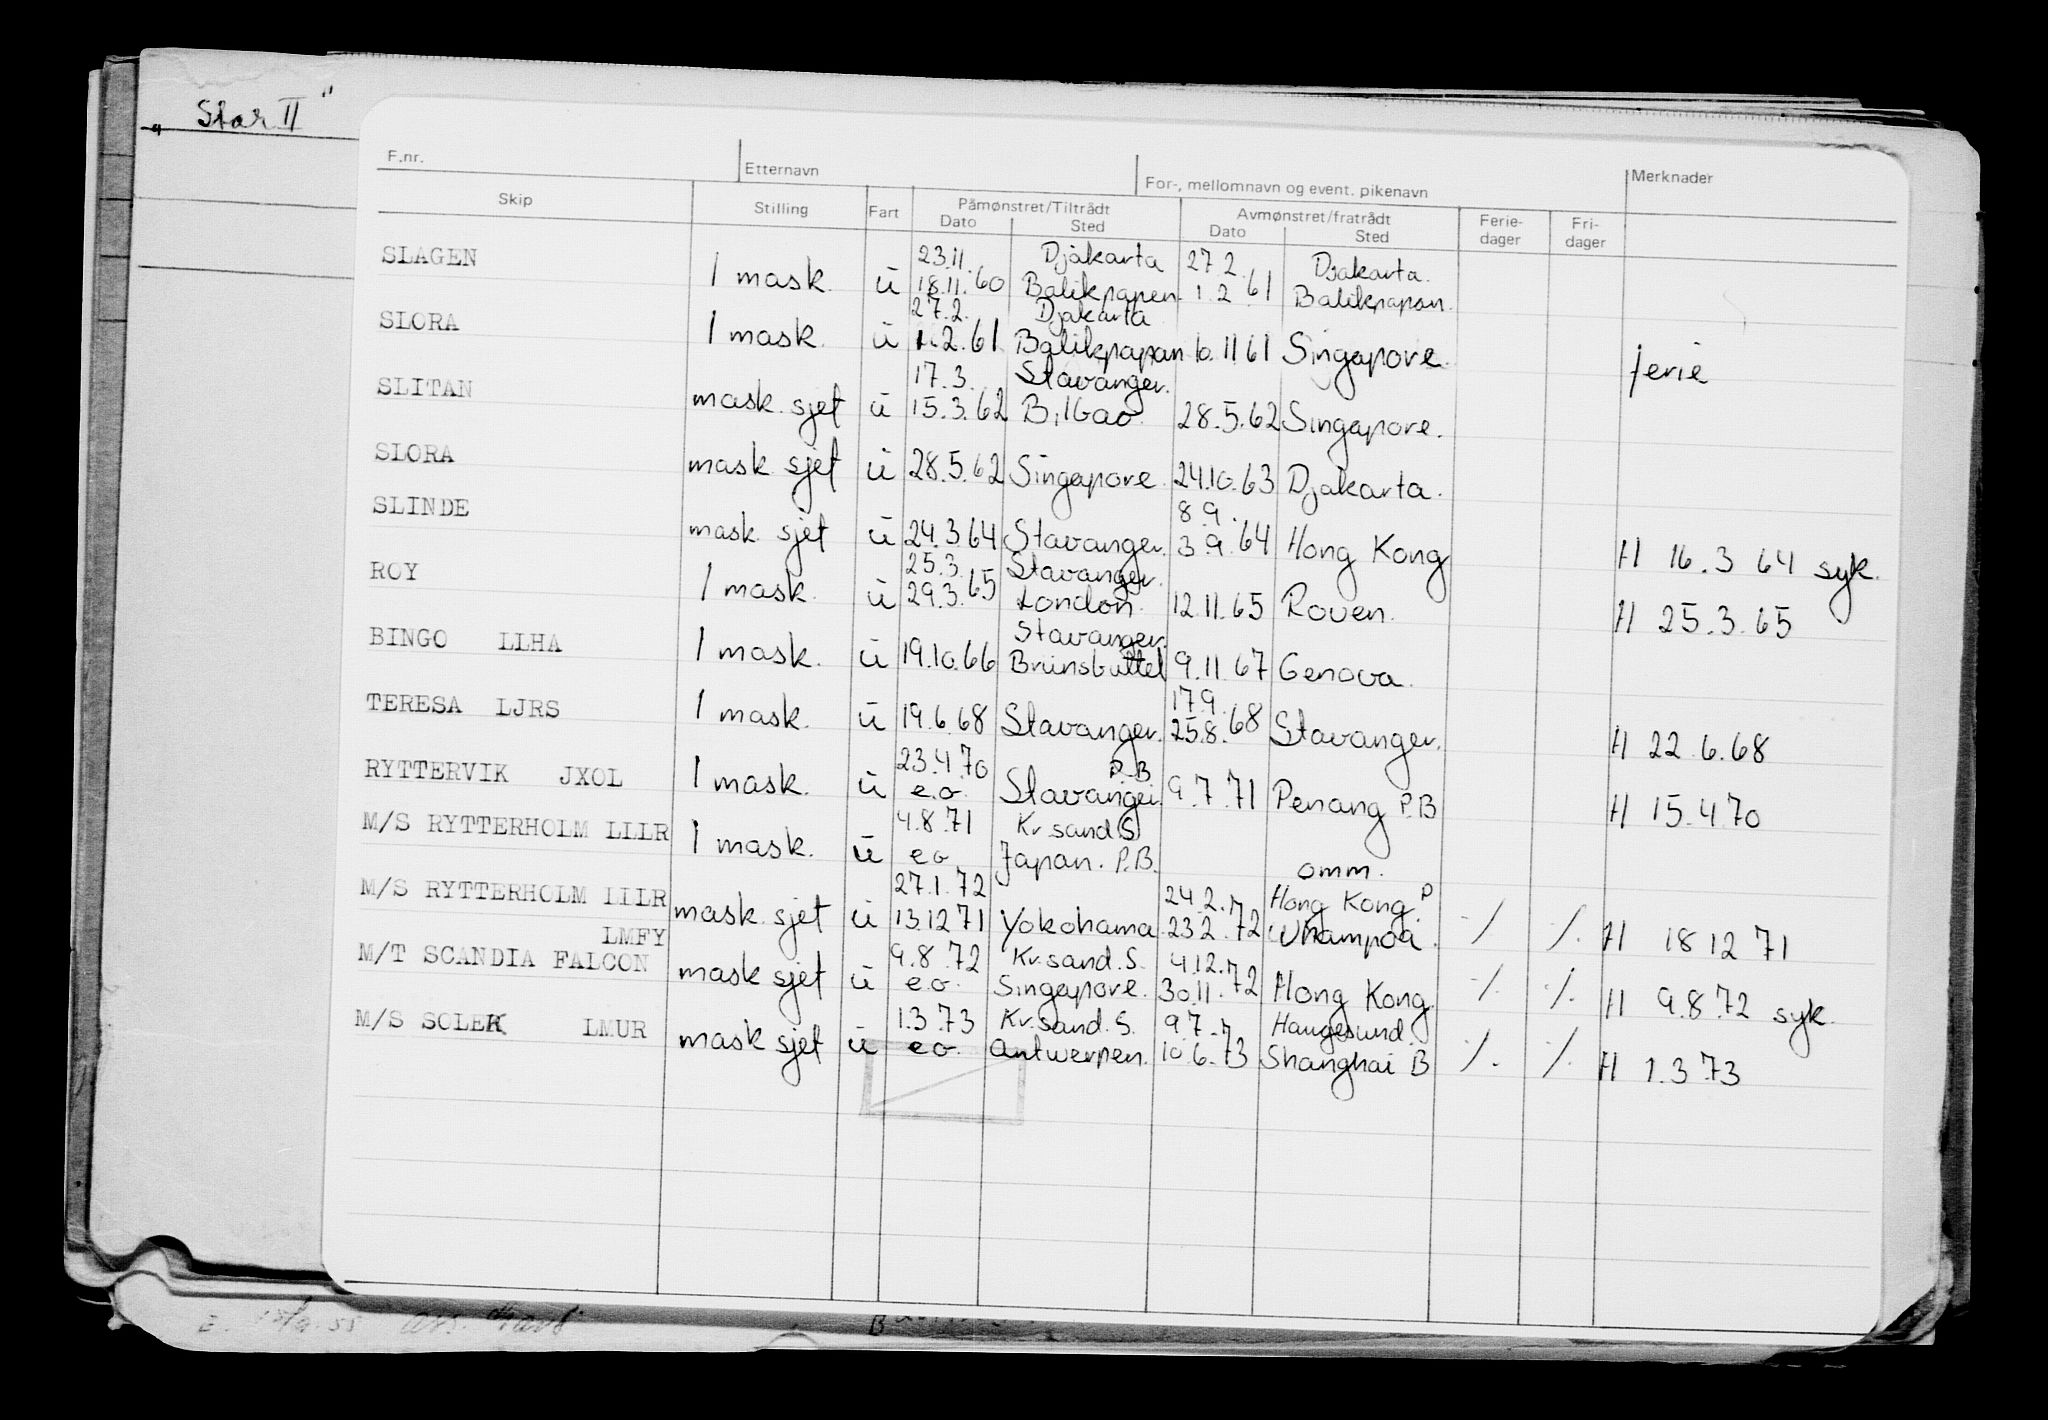 „ Star II "
F.nr. Etternavn For-, mellomnavn og event. pikenavn Merknader
Skip Stilling Fart Påmønstret/Tiltrådt Avmønstret/fratrådt Ferie- Fri-
Dato Sted Dato Sted dager dager
23.11. Djakarta 27.2. Djakarta.
SLAGEN 1 mask. ü 18.11.60 Balikpapen. 1.2.61 Balikpapan.
27.2. Djakarta
SLORA 1 mask. ü 1.2.61 Balikpapan 10.11 61 Singapore. ferie
17.3. Stavanger.
SLITAN mask. sjet ü 15.3.62 Bilbao. 28.5.62 Singapore.
SLORA mask. sjef ü 28.5.62 Singapore. 24.10.63 Djakarta.
8.9.
SLINDE mask. sjef ü 24.3.64 Stavanger. 3.9.64 Hong Kong H 16.3 64 syk.
25.3. Stavanger.
ROY 1 mask. ü 29.3.65 London. 12.11.65 Rouen. H 25.3.65
Stavanger.
BINGO LLHA 1 mask. ü 19.10.66 Brünsbuttel 9.11.67 Genova.
17.9.
TERESA LJRS 1 mask. ü 19.6.68 Stavanger. 25.8.68 Stavanger. H 22.6.68
23.4.70 P.B
RYTTERVIK JXOL 1 mask. ü e.o. Stavanger. 9.7.71 Penang P.B H 15.4.70
4.8.71 Kr.sand.S
M/S RYTTERHOLM LLLR 1 mask. ü e.o. Japan. P.B. omm.
27.1.72 24.2. Hong Kong. P
M/S RYTTERHOLM LLLR mask. sjef ü 13.12 71 Yokohama 23.2.72 Whampoa. -/- ./. H 18 12 71
LMFY 9.8.72 Kr.sand.S. 4.12.
M/T SCANDIA FALCON mask sjef ü e.o. Singapore. 30.11.72 Hong Kong. ./. ./. H 9.8.72 syk.
1.3.73 Kr.sand.S. 9.7. Haugesund.
M/S SOLEK LMUR mask sjef ü e.o. Antwerpen. 10.6.73 Shanghai B ./. ./. H 1.3.73